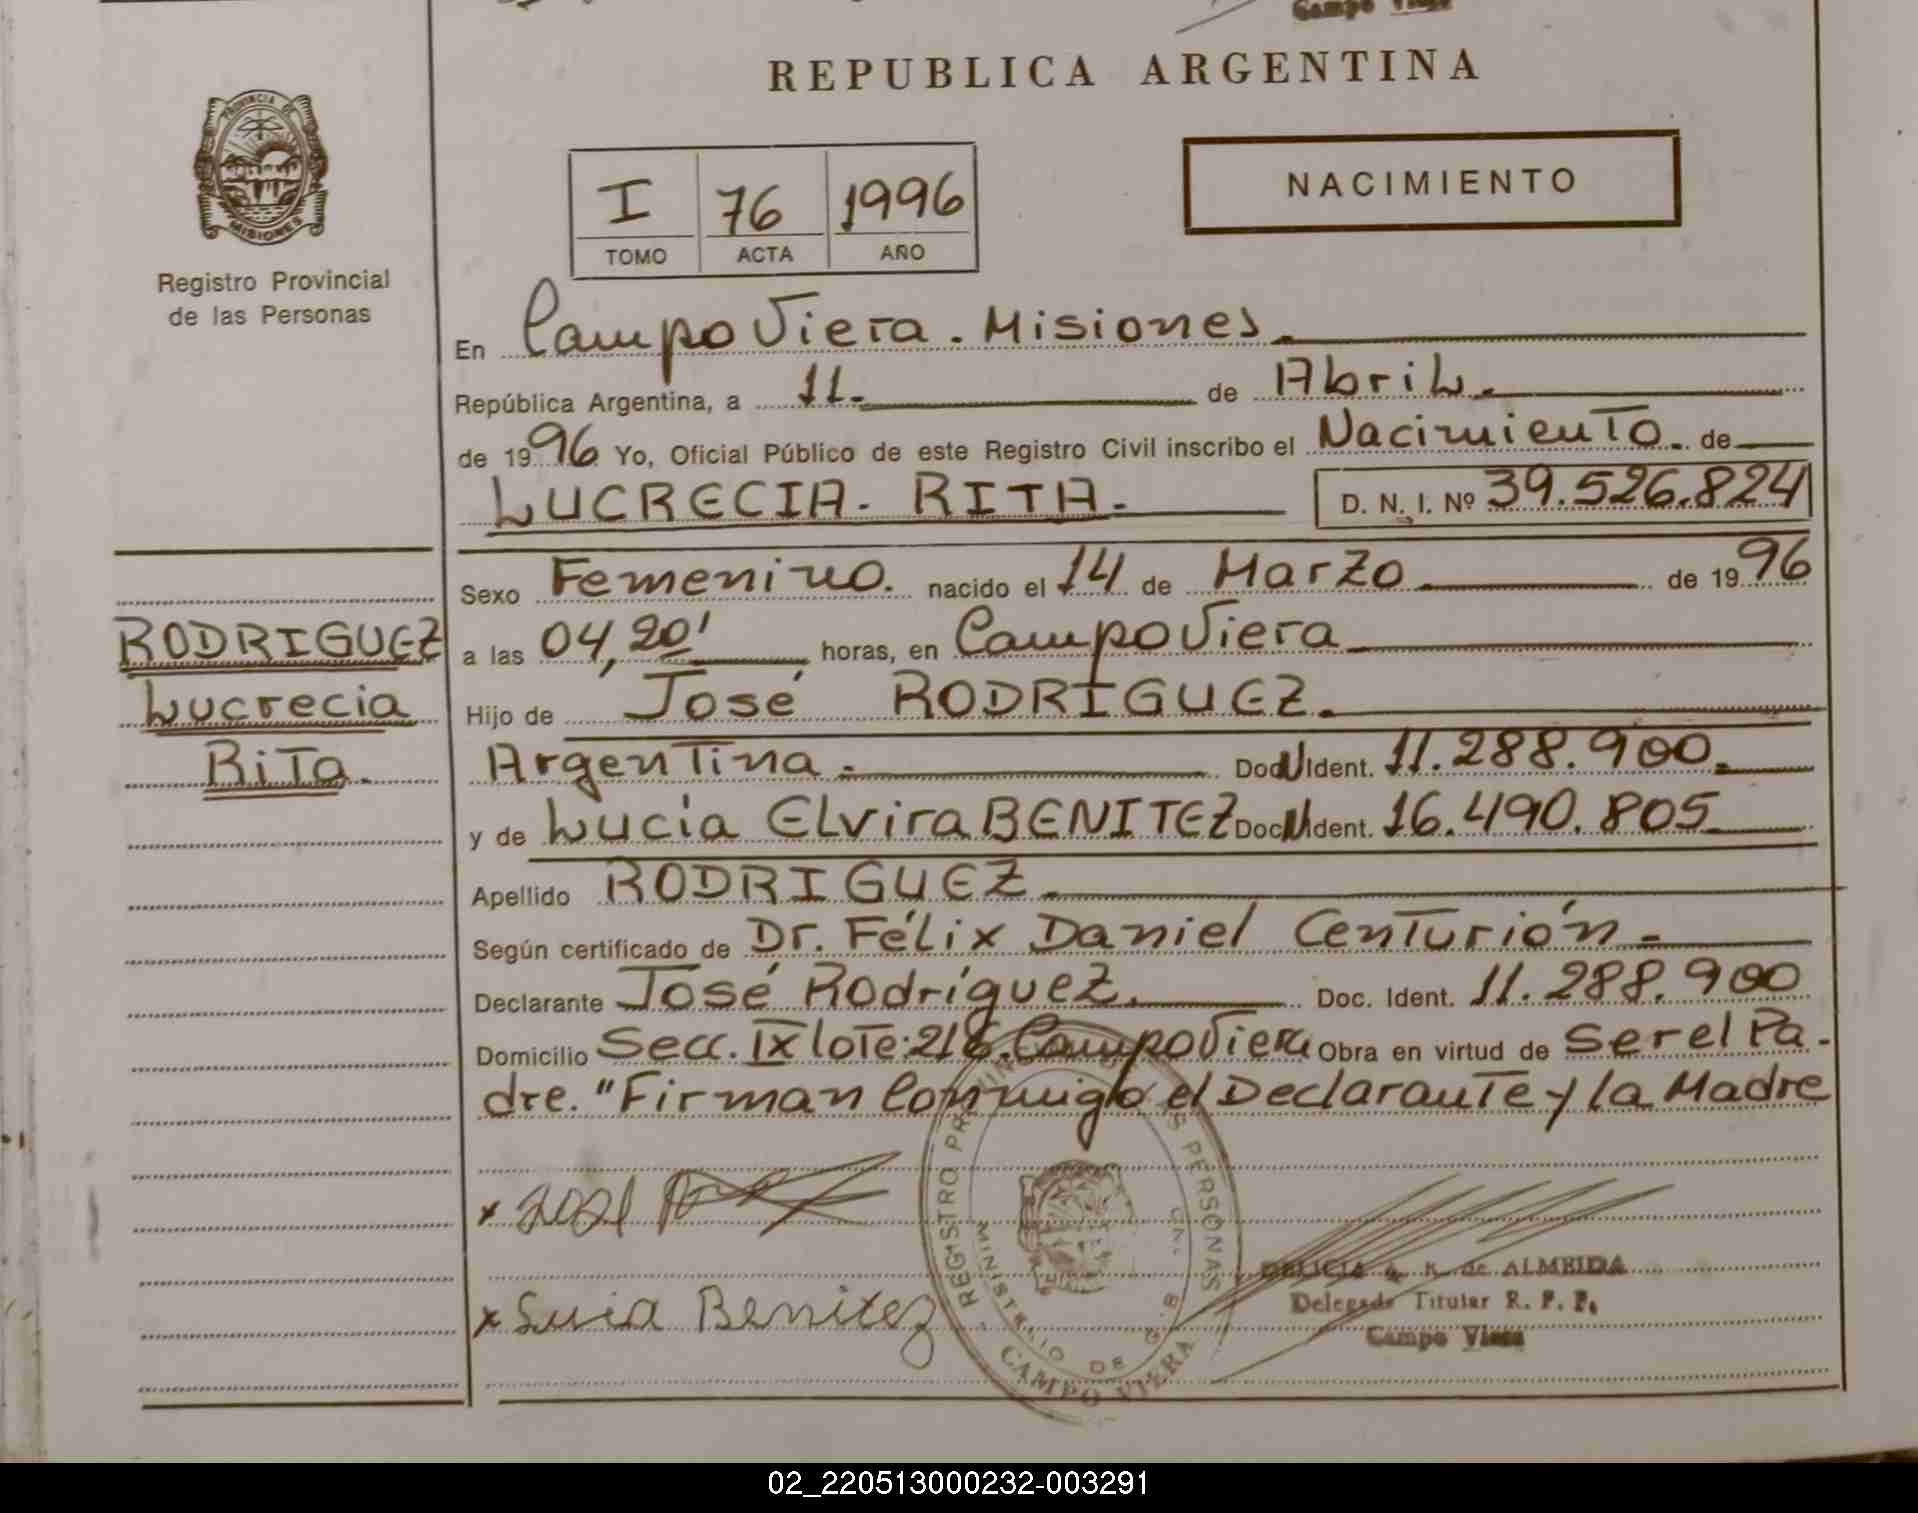 Campo Viera
REPUBLICA ARGENTINA
PROVINCIA DE
MISIONES
Registro Provincial
de las Personas
I 76 1996
TOMO ACTA AÑO
NACIMIENTO
En Campo Viera. Misiones.
República Argentina, a 11. de Abril.
de 1996 Yo, Oficial Público de este Registro Civil inscribo el Nacimiento. de
LUCRECIA. RITA. D. N. I. Nº 39.526.824
Sexo Femenino. nacido el 14 de Marzo de 1996
a las 04,20' horas, en Campo Viera
Hijo de José RODRIGUEZ.
Argentina. Doc. Ident. 11.288.900.
y de Lucía Elvira BENITEZ Doc. Ident. 16.490.805
Apellido RODRIGUEZ.
Según certificado de Dr. Félix Daniel Centurión.
Declarante José Rodríguez. Doc. Ident. 11.288.900
Domicilio Secc. IX lote: 216. Campo Viera Obra en virtud de Ser el Pa-
dre. "Firman Conmigo el Declarante y la Madre
RODRIGUEZ
Lucrecia
Rita.
x José
x Lucia Benitez
REGISTRO PERSONAS
MINISTERIO DE
CAMPO VIERA
de ALMEIDA
Delegado Titular R. P. P.
Campo Viera
02_220513000232-003291